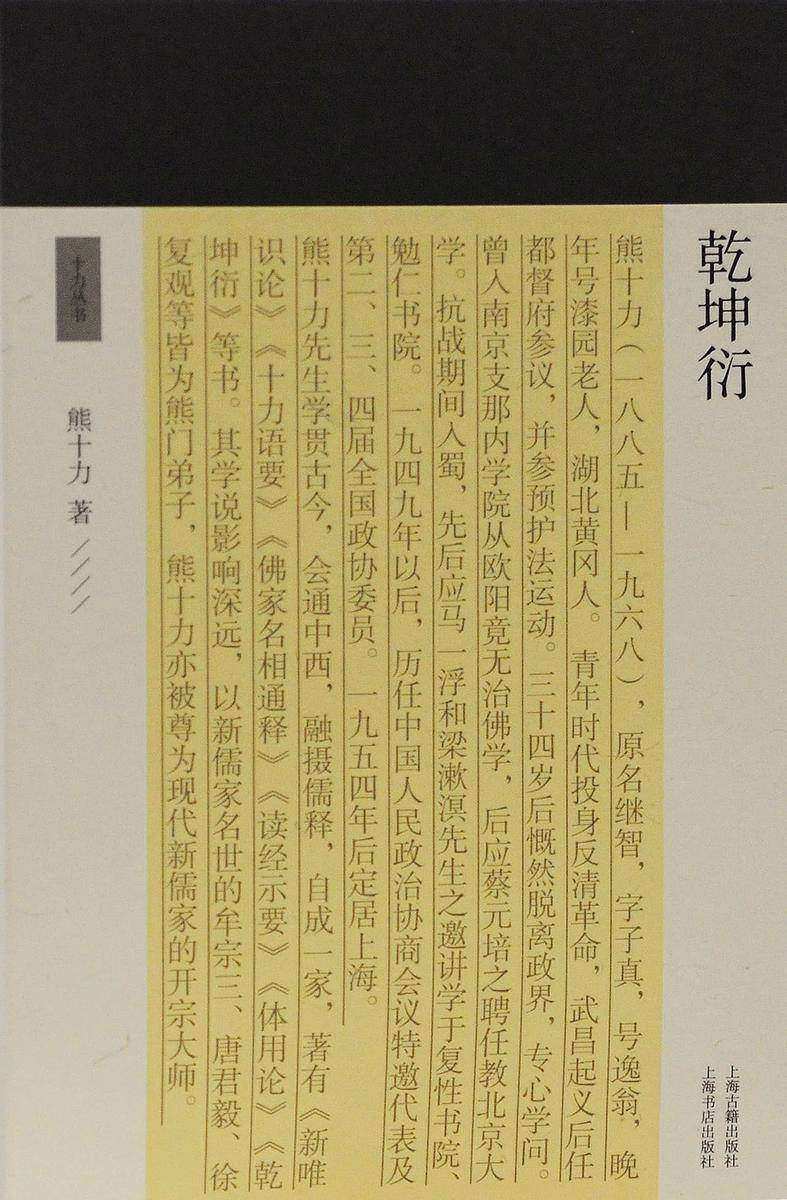 乾坤衍
上海古籍出版社
上海书店出版社
熊十力（一八八五—一九六八），原名继智，字子真，号逸翁，晚
年号漆园老人，湖北黄冈人。青年时代投身反清革命，武昌起义后任
都督府参议，并参预护法运动。三十四岁后慨然脱离政界，专心学问。
曾入南京支那内学院从欧阳竟无治佛学，后应蔡元培之聘任教北京大
学。抗战期间入蜀，先后应马一浮和梁漱溟先生之邀讲学于复性书院、
勉仁书院。一九四九年以后，历任中国人民政治协商会议特邀代表及
第二、三、四届全国政协委员。一九五四年后定居上海。
熊十力先生学贯古今，会通中西，融摄儒释，自成一家，著有《新唯
识论》《十力语要》《佛家名相通释》《读经示要》《体用论》《乾
坤衍》等书。其学说影响深远，以新儒家名世的牟宗三、唐君毅、徐
复观等皆为熊门弟子，熊十力亦被尊为现代新儒家的开宗大师。
十力丛书
熊十力 著